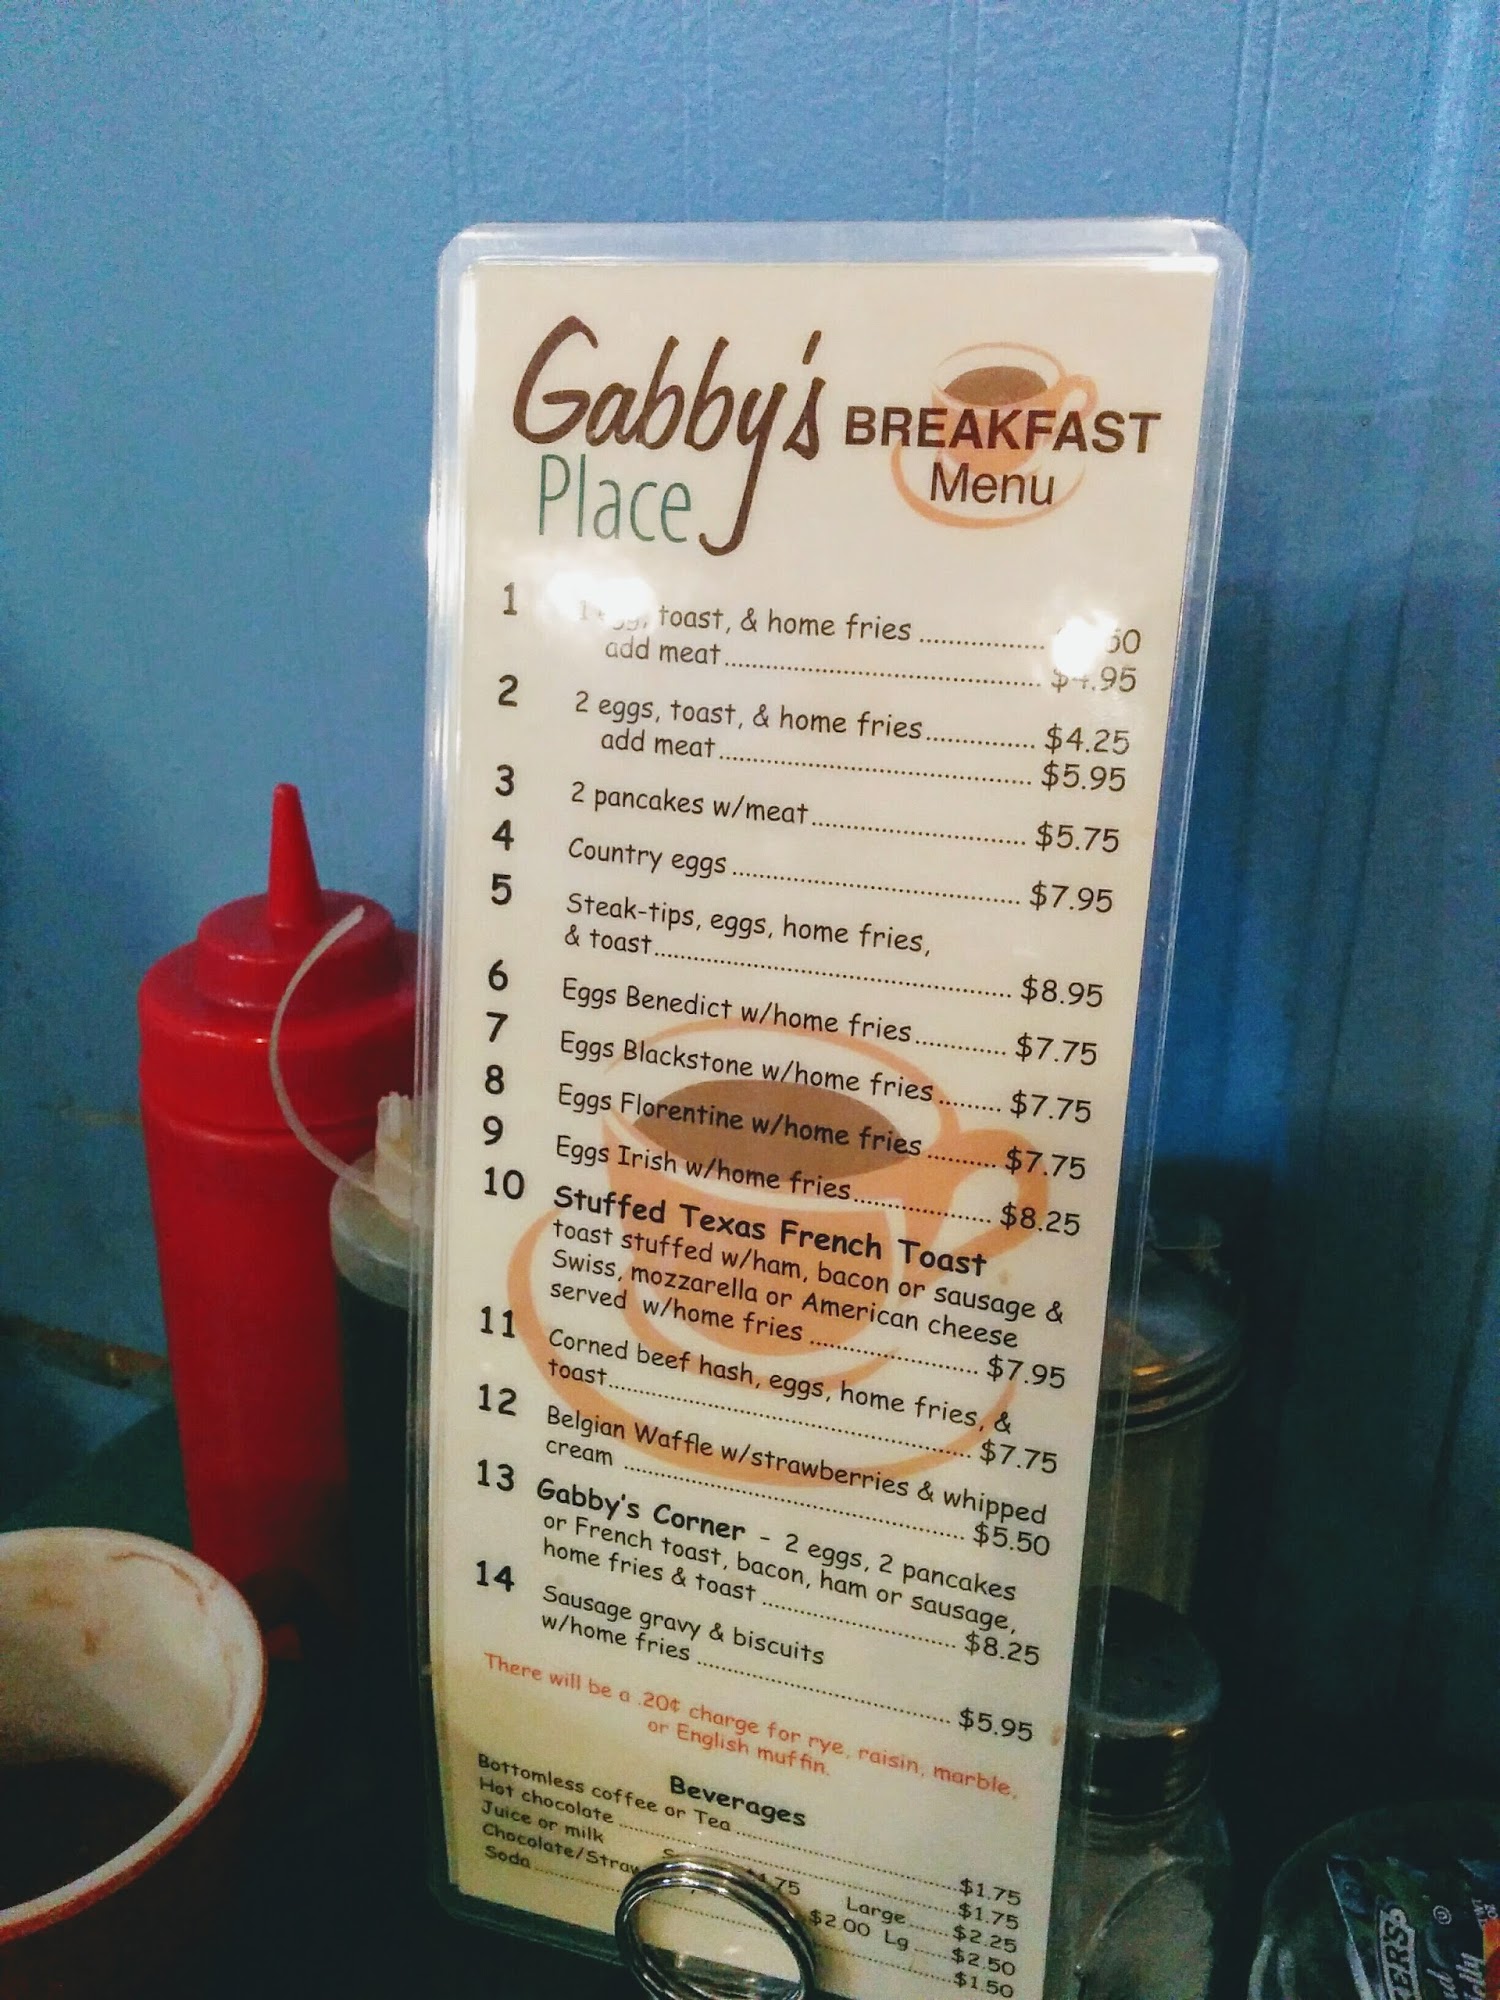 Gabby's
Place
BREAKFAST
Menu
1 toast, & home fries
add meat $4.95
2 2 eggs, toast, & home fries $4.25
add meat $5.95
3 2 pancakes w/meat $5.75
4 Country eggs $7.95
5 Steak-tips, eggs, home fries,
& toast $8.95
6 Eggs Benedict w/home fries $7.75
7 Eggs Blackstone w/home fries $7.75
8 Eggs Florentine w/home fries $7.75
9 Eggs Irish w/home fries $8.25
10 Stuffed Texas French Toast
toast stuffed w/ham, bacon or sausage &
Swiss, mozzarella or American cheese
served w/home fries $7.95
11 Corned beef hash, eggs, home fries, &
toast $7.75
12 Belgian Waffle w/strawberries & whipped
cream $5.50
13 Gabby's Corner - 2 eggs, 2 pancakes
or French toast, bacon, ham or sausage,
home fries & toast $8.25
14 Sausage gravy & biscuits
w/home fries $5.95
There will be a .20¢ charge for rye, raisin, marble,
or English muffin.
Beverages
Bottomless coffee or Tea $1.75
Hot chocolate $1.75
Juice or milk Large $2.25
$2.00 Lg $2.50
Soda $1.50